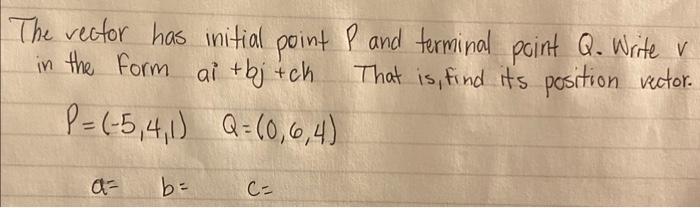 The vector has initial point P and terminal point Q. Write v
in the form ai +bj +ch That is, find its position vector.
P=(-5,4,1) Q=(0,6,4)
a= b= c=